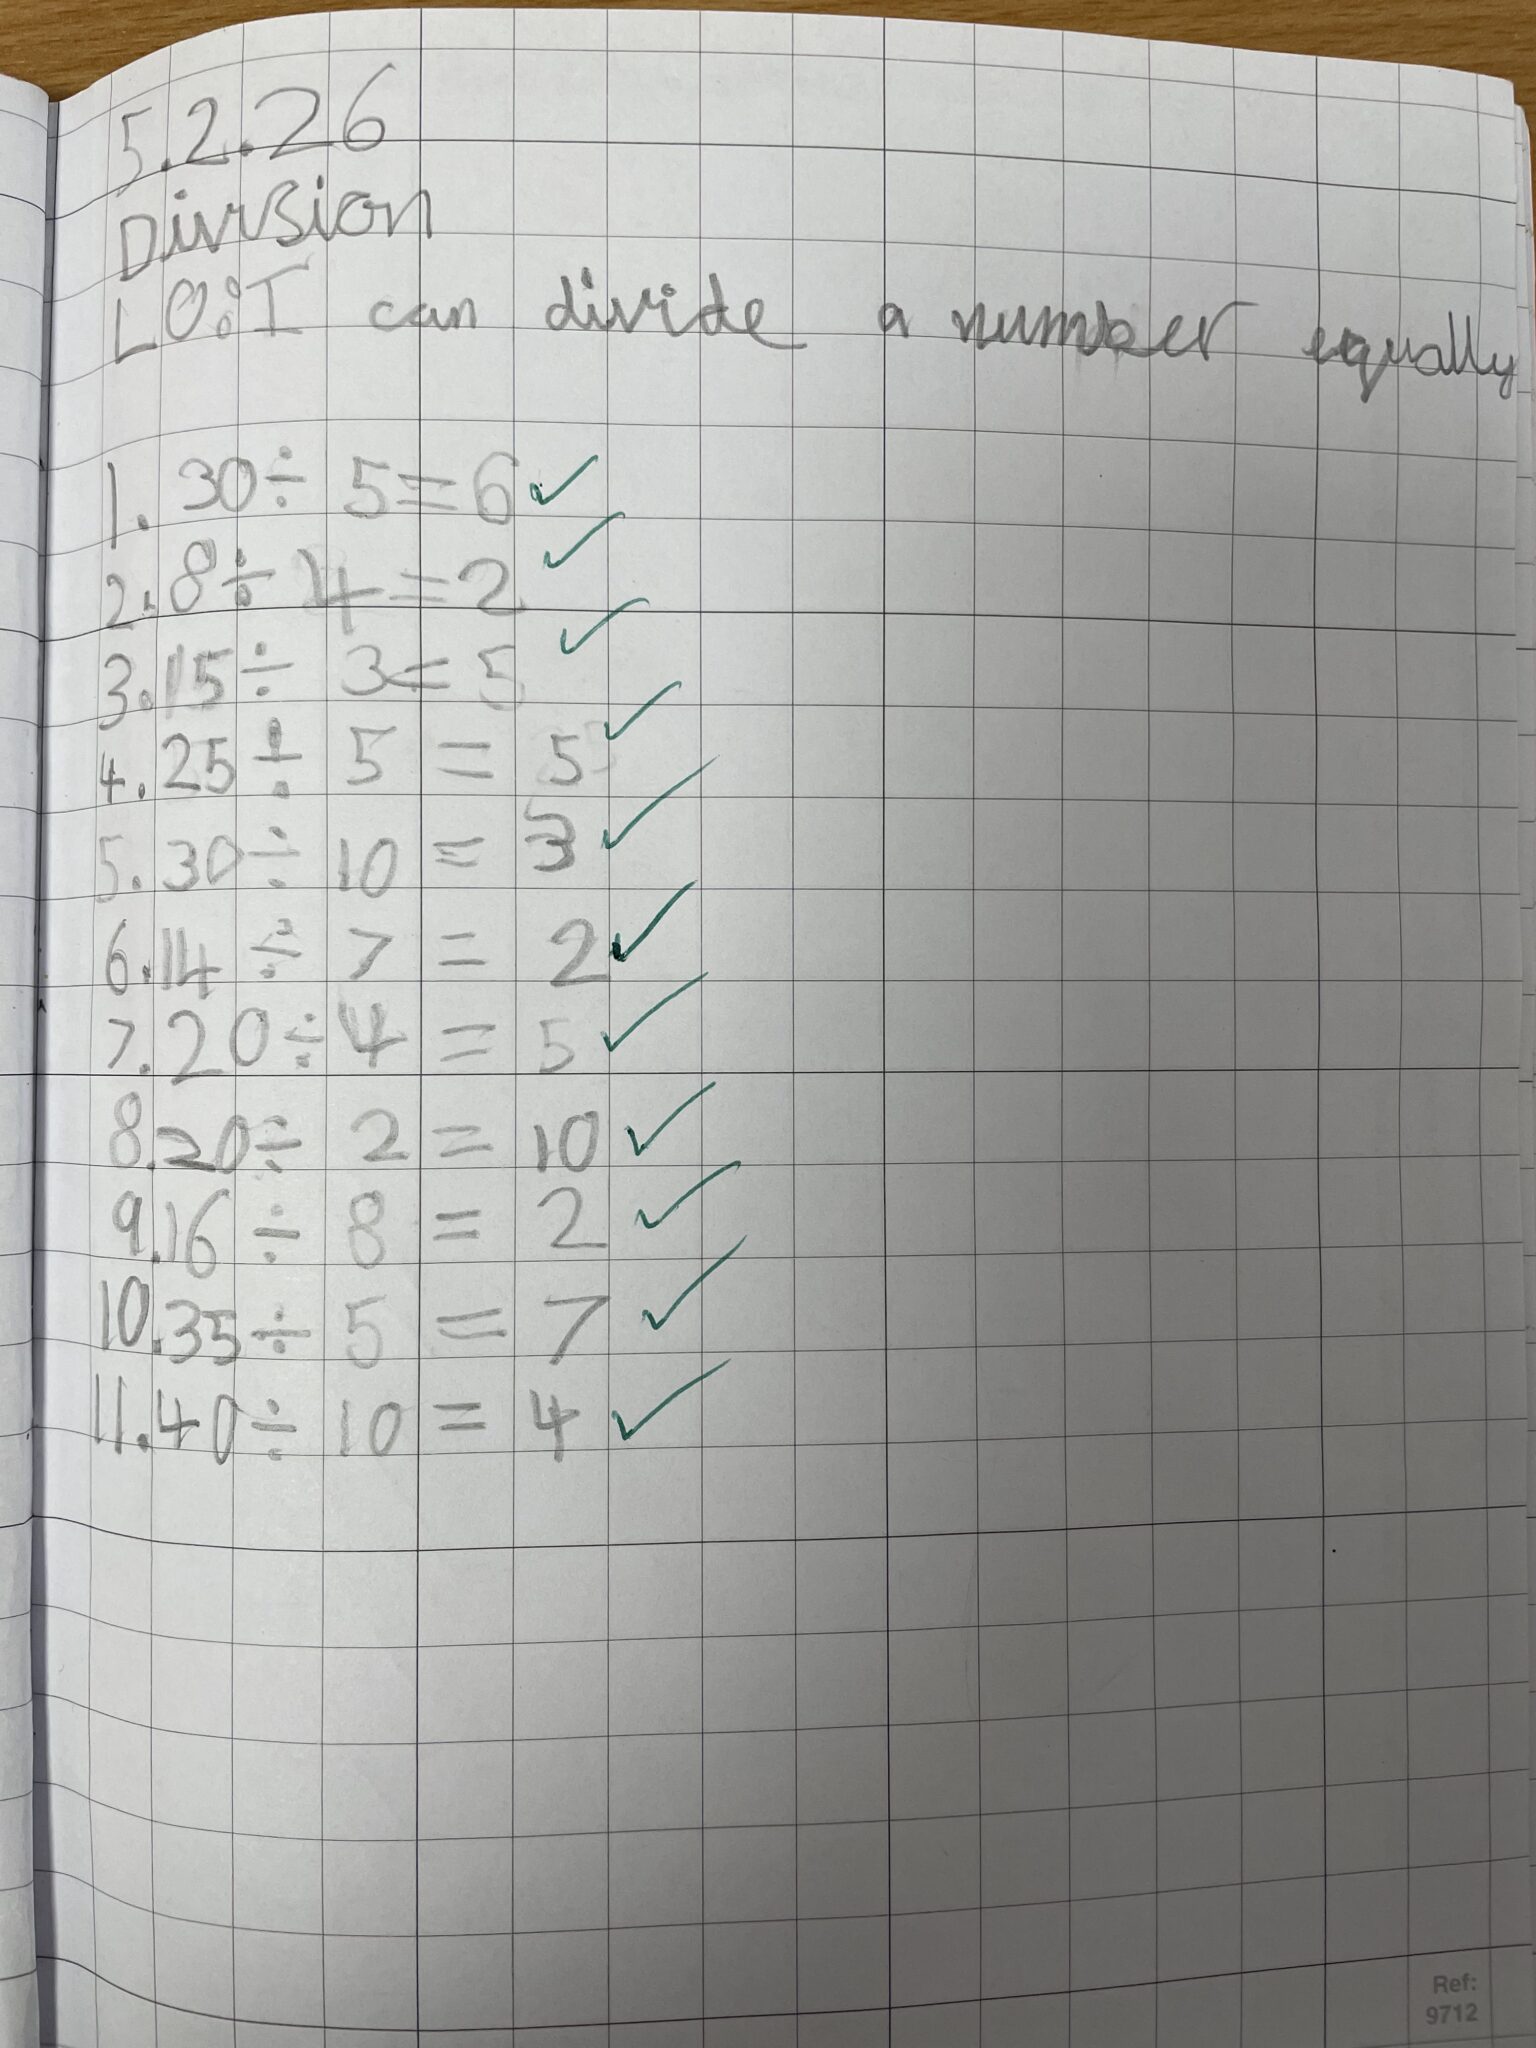 5.2.26
Division
LO:I can divide a number equally
1. 30 ÷ 5 = 6 ✓
2. 8 ÷ 4 = 2 ✓
3. 15 ÷ 3 = 5 ✓
4. 25 ÷ 5 = 5 ✓
5. 30 ÷ 10 = 3 ✓
6. 14 ÷ 7 = 2 ✓
7. 20 ÷ 4 = 5 ✓
8. 20 ÷ 2 = 10 ✓
9. 16 ÷ 8 = 2 ✓
10. 35 ÷ 5 = 7 ✓
11. 40 ÷ 10 = 4 ✓
Ref:
9712